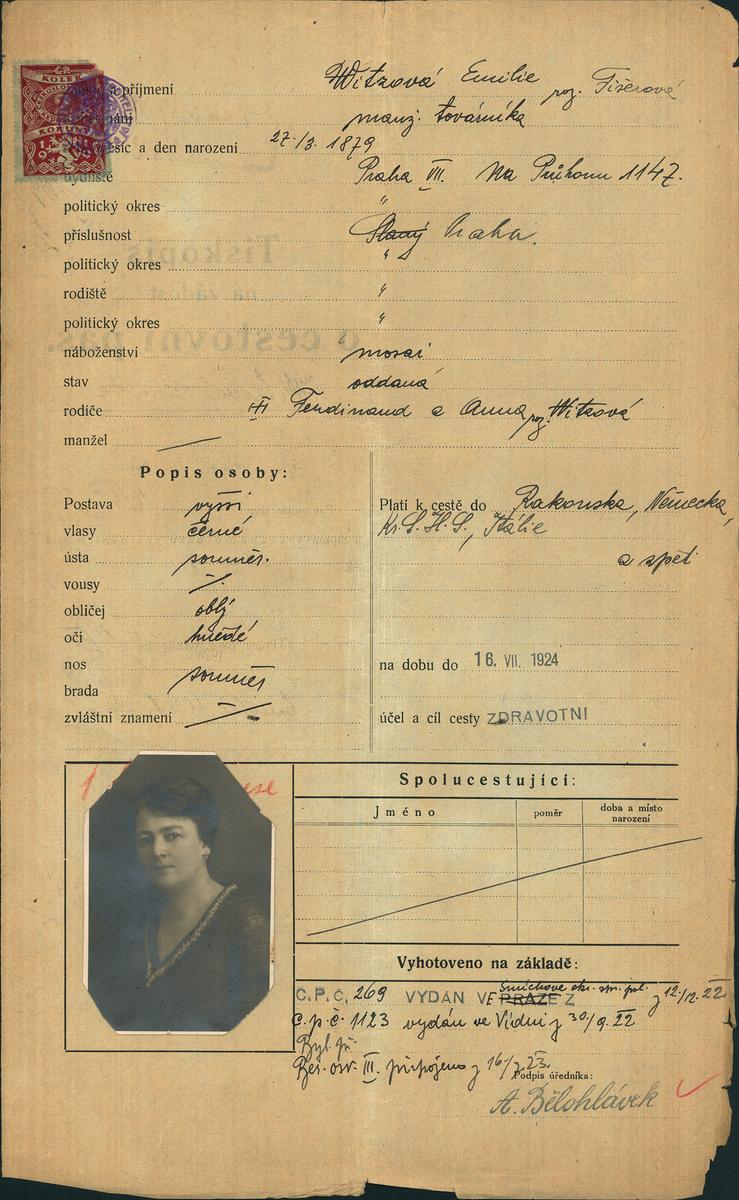 KOLEK
KORUNY
a příjmení Witzová Emilie roz. Fišerová
manž. továrníka
síc a den narození 27./3. 1879
bydliště Praha VII. Na Průhonu 1147.
politický okres "
příslušnost Slaný Praha.
politický okres "
rodiště "
politický okres "
náboženství mosai
stav oddaná
rodiče Ferdinand a Anna roz. Witzová
manžel —
Popis osoby:
Postava vyšší
vlasy černé
ústa souměr.
vousy —/.
obličej oblý
oči hnědé
nos
brada souměr
zvláštní znamení —/—
Platí k cestě do Rakouska, Německa,
Kr. S. H. S., Itálie
a zpět
na dobu do 16. VII. 1924
účel a cíl cesty ZDRAVOTNI
Spolucestující:
Jméno poměr doba a místo narození
Vyhotoveno na základě:
C.P.Č. 269 VYDÁN VE PRAZE Z Smíchově okr. spr. pol. z 12/12. 22
č. p. č. 1123 vydán ve Vídni z 30/9. 22
Byl. př.
Ber. osv. III. připojeno z 16/7 23.
Podpis úředníka:
A. Bělohlávek